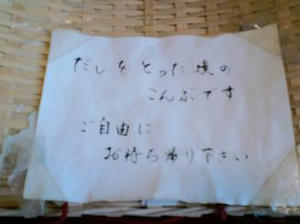 だしをとった後の
こんぶです
ご自由に
お持ち帰り下さい